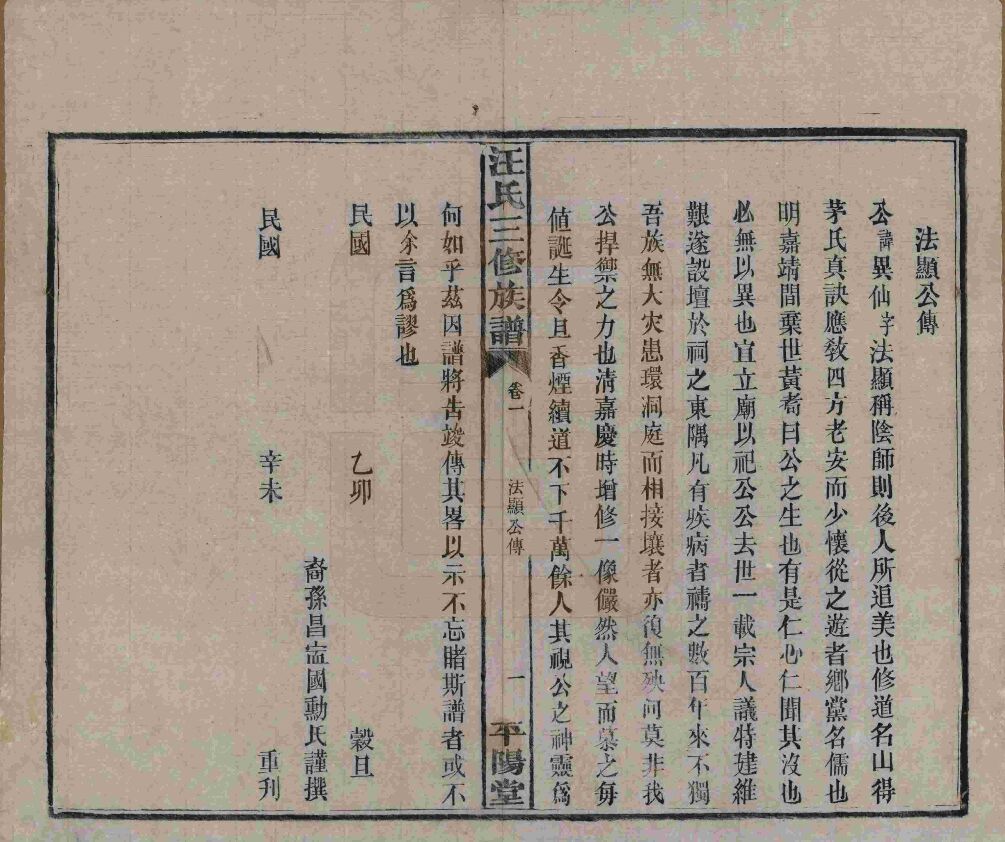 法顯公傳
公諱異仙字法顯稱陰師則後人所追美也修道名山得
茅氏真訣應教四方老安而少懷從之遊者鄉黨名儒也
明嘉靖間棄世黃耈曰公之生也有是仁心仁聞其沒也
必無以異也宜立廟以祀公公去世一載宗人議特建維
艱遂設壇於祠之東隅凡有疾病者禱之數百年來不獨
吾族無大灾患環洞庭而相接壤者亦復無殃何莫非我
公捍禦之力也淸嘉慶時增修一像儼然人望而慕之每
值誕生令旦香煙續道不下千萬餘人其視公之神靈爲
何如乎茲因譜將告竣傳其畧以示不忘睹斯譜者或不
以余言爲謬也
民國 乙卯 穀旦
裔孫昌寍國勳氏謹撰
民國 辛未 重刋
汪氏三修族譜 卷一 法顯公傳 一 平陽堂